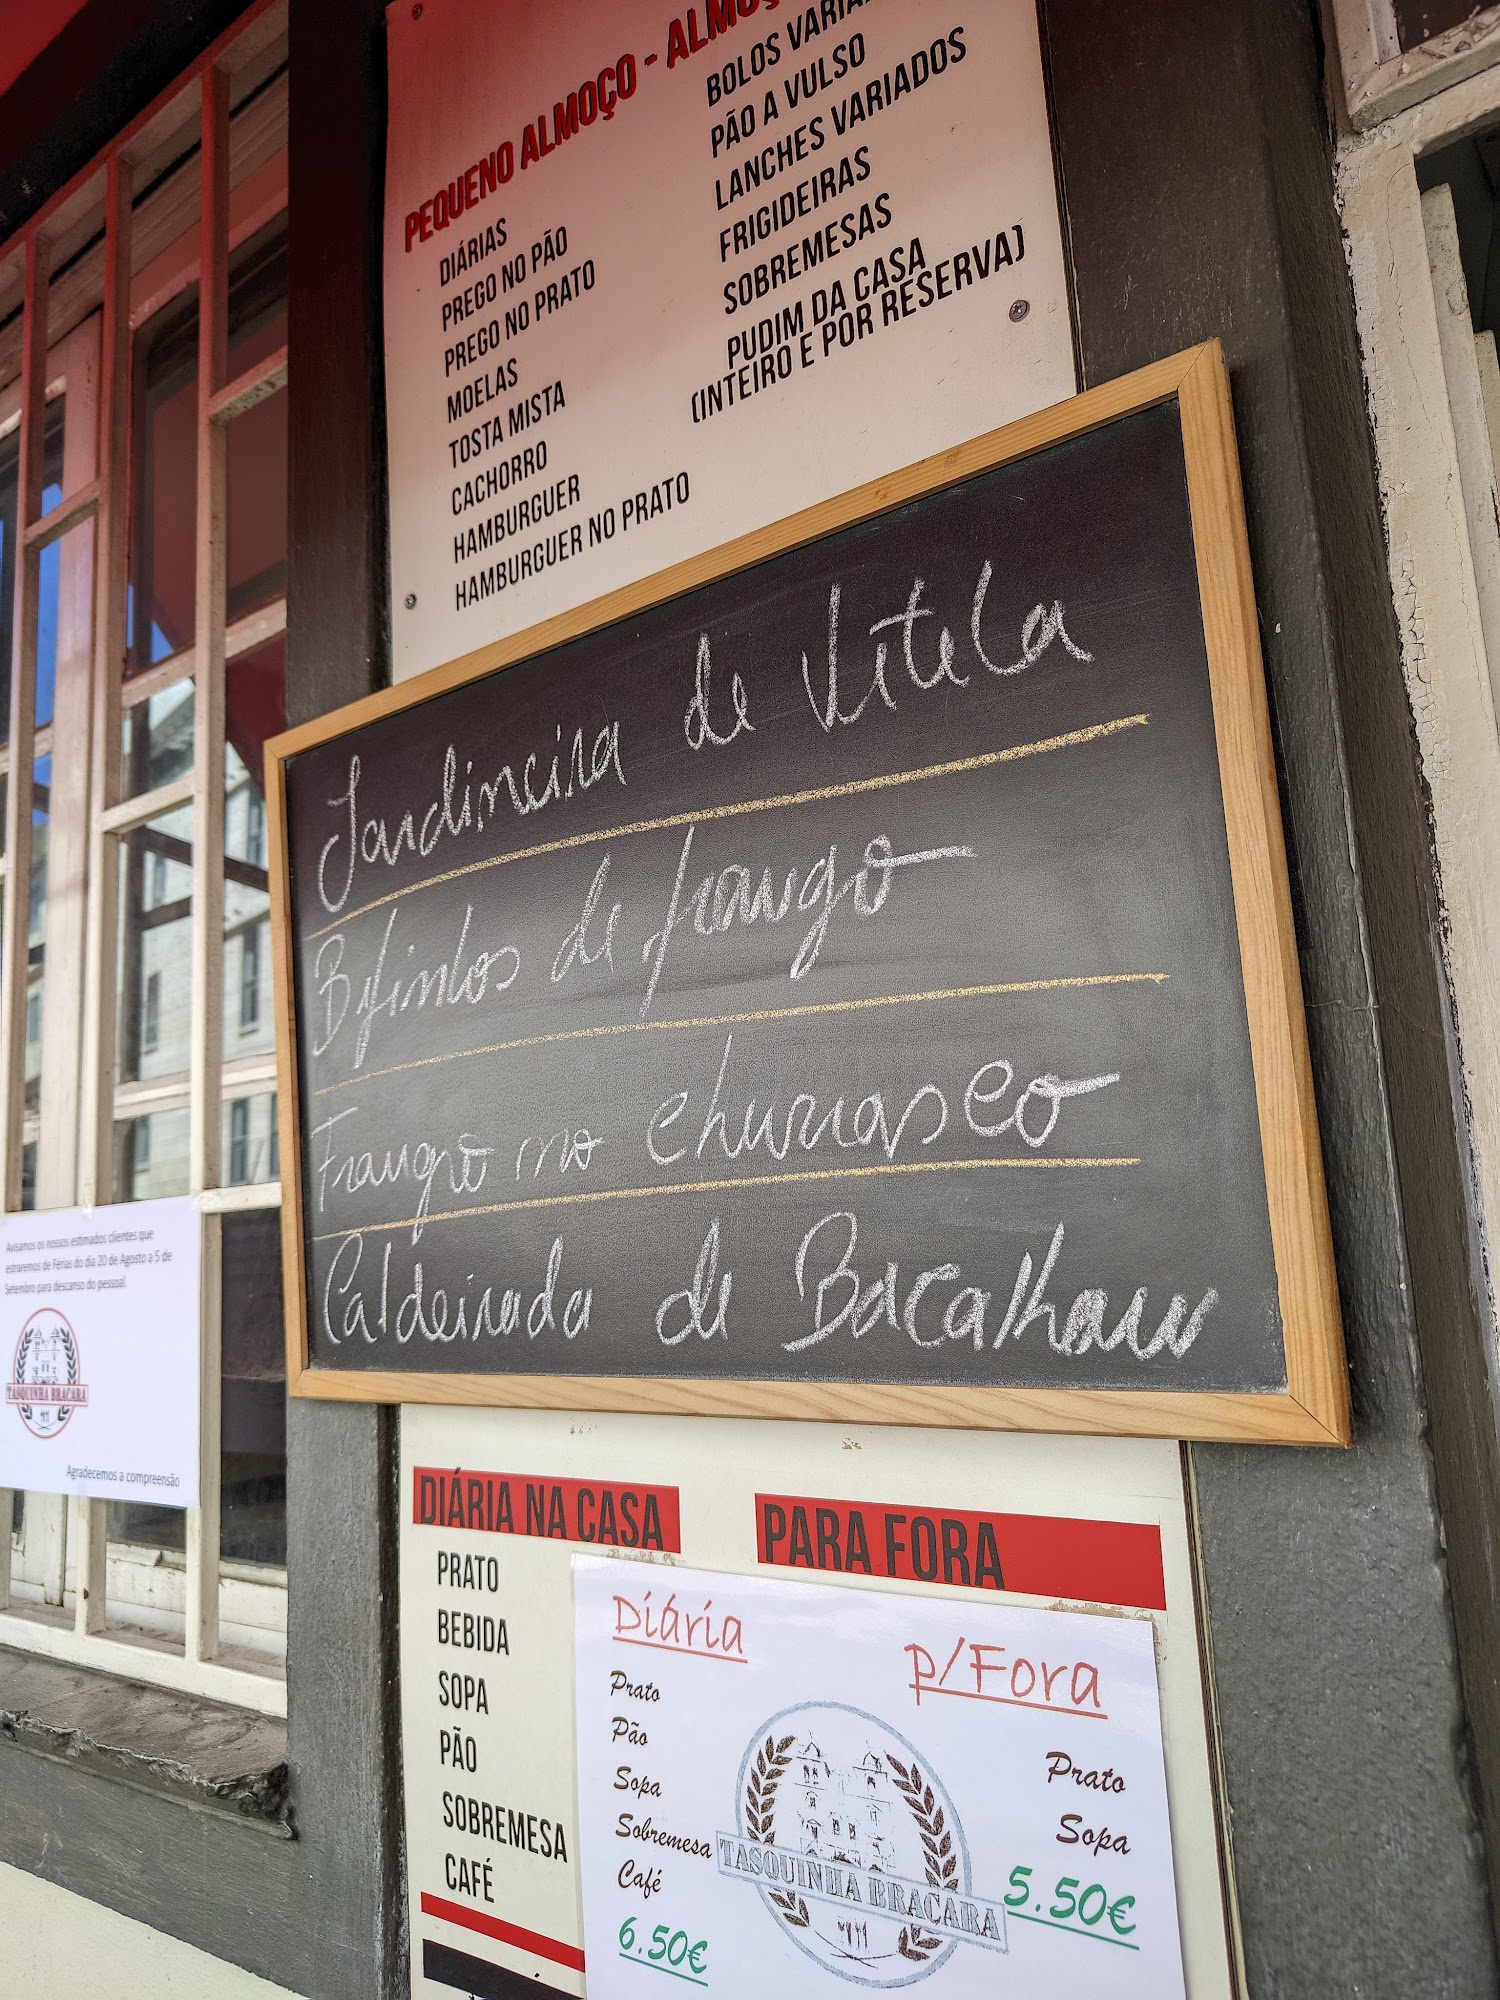 PEQUENO ALMOÇO - ALMOÇ
DIÁRIAS
PREGO NO PÃO
PREGO NO PRATO
MOELAS
TOSTA MISTA
CACHORRO
HAMBURGUER
HAMBURGUER NO PRATO
BOLOS VARIA
PÃO A VULSO
LANCHES VARIADOS
FRIGIDEIRAS
SOBREMESAS
PUDIM DA CASA
(INTEIRO E POR RESERVA)
Jardineira de Vitela
Bifinhos de frango
Frango no churrasco
Caldeirada de Bacalhau
Avisamos os nossos estimados clientes que
estraremos de Férias do dia 20 de Agosto a 5 de
Setembro para descanso do pessoal.
TASQUINHA BRACARA
Agradecemos a compreensão
DIÁRIA NA CASA
PRATO
BEBIDA
SOPA
PÃO
SOBREMESA
CAFÉ
PARA FORA
Diária
Prato
Pão
Sopa
Sobremesa
Café
6.50€
p/Fora
Prato
Sopa
5.50€
TASQUINHA BRACARA